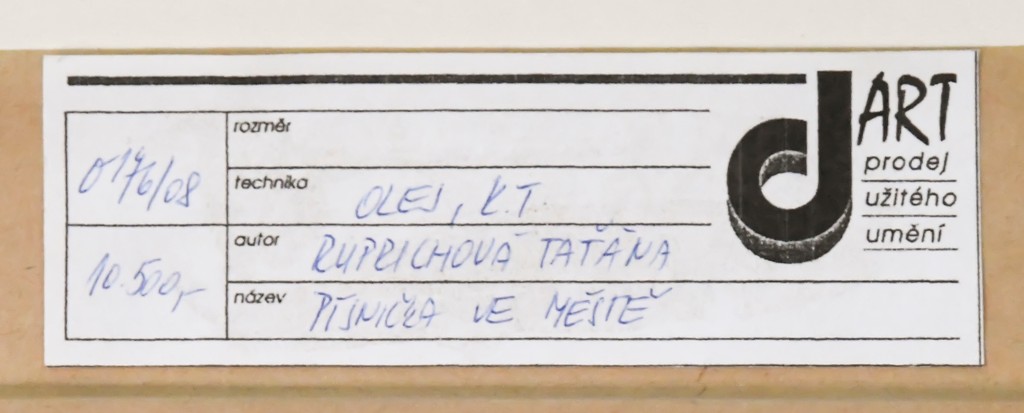 rozměr
technika OLEJ, K.T.
autor RUPRICHOVÁ TAŤÁNA
název PÍSNIČKA VE MĚSTĚ
0176/08
10.500,-
d ART
prodej
užitého
umění